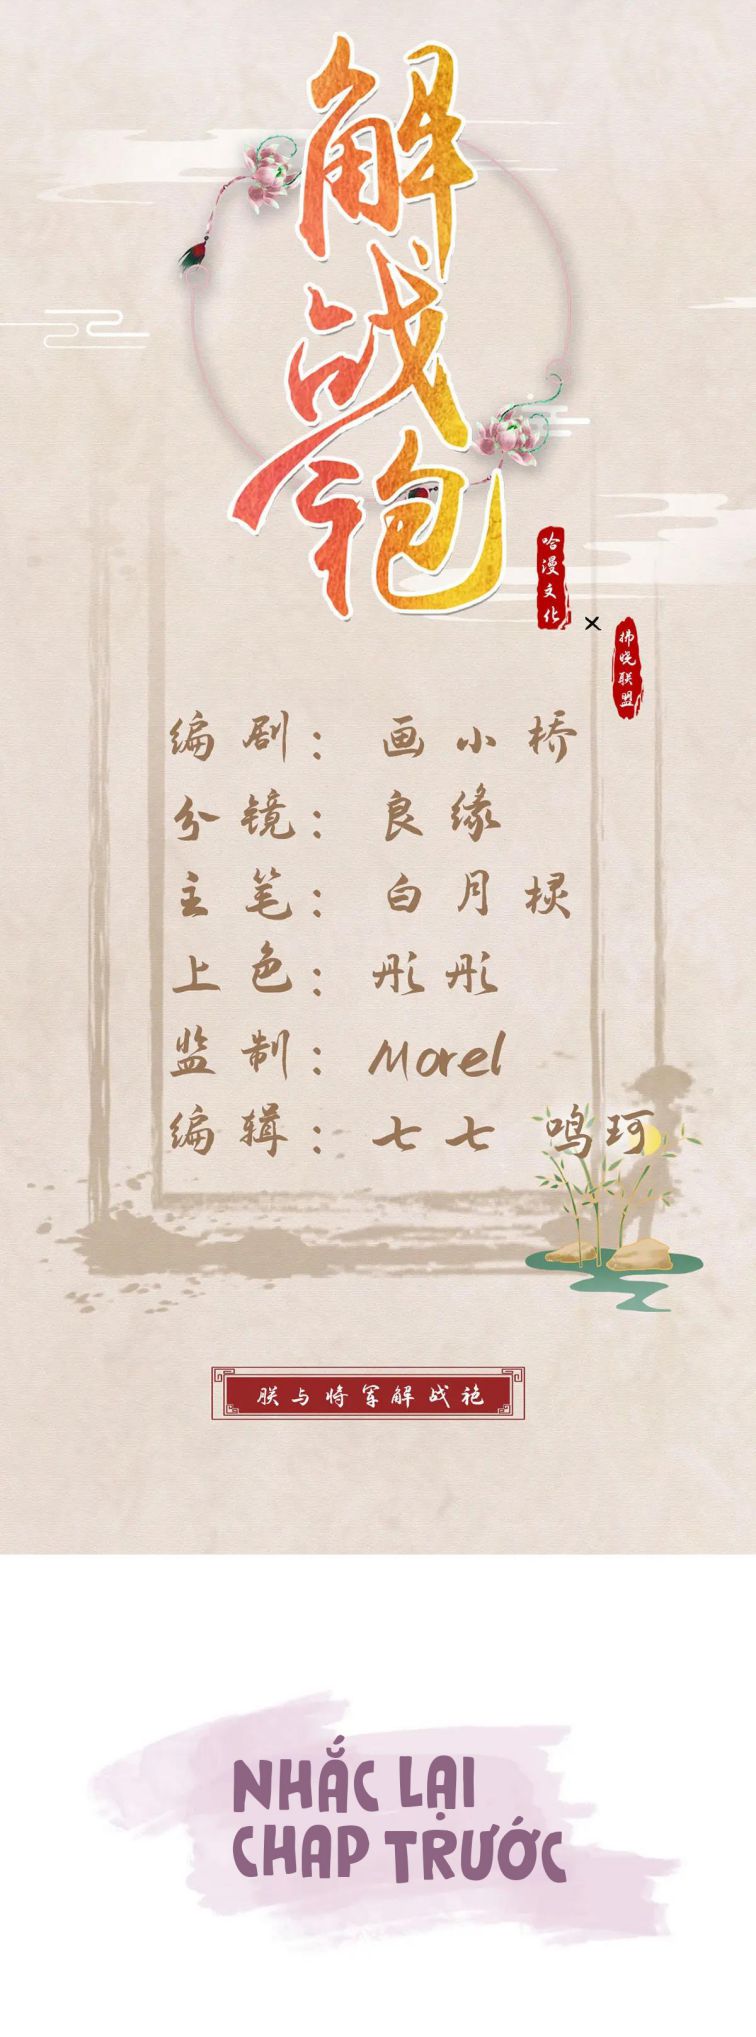 解战袍
哈漫文化
×
拂晓联盟
编剧：画小桥
分镜：良缘
主笔：白月棂
上色：彤彤
监制：Morel
编辑：七七 鸣珂
朕与将军解战袍
NHẮC LẠI
CHAP TRƯỚC